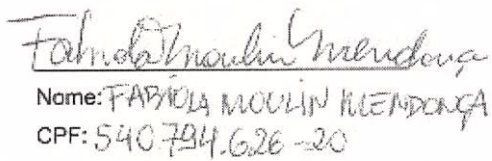 Fabiola Moulin Mendonça
Nome: FABÍOLA MOULIN MENDONÇA
CPF: 540.794.626-20